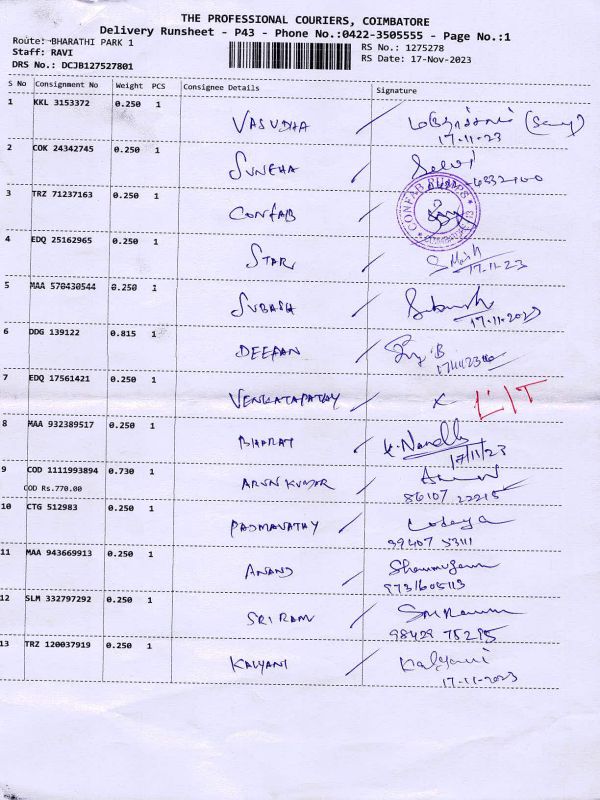 THE PROFESSIONAL COURIERS, COIMBATORE
Delivery Runsheet - P43 - Phone No.:0422-3505555 - Page No.:1
Route: BHARATHI PARK 1
Staff: RAVI
DRS No.: DCJB127527801
RS No.: 1275278
RS Date: 17-Nov-2023
S No Consignment No Weight PCS Consignee Details Signature
1 KKL 3153372 0.250 1 VASUDHA
17.11.23
2 COK 24342745 0.250 1 SUNEHA
3 TRZ 71237163 0.250 1 CONFAB
4 EDQ 25162965 0.250 1 STAR
17.11.23
5 MAA 570430544 0.250 1 SUBASH
17.11.2023
6 DDG 139122 0.815 1 DEEPAN
7 EDQ 17561421 0.250 1 VENKATAPATHY
8 MAA 932389517 0.250 1 BHARAT
17/11/23
9 COD 1111993894 0.730 1 ARUN KUMAR
COD Rs.770.00 86107 22215
10 CTG 512983 0.250 1 PADMAVATHY
99407 53111
11 MAA 943669913 0.250 1 ANAND
12 SLM 332797292 0.250 1 SRI RAM
98428 75295
13 TRZ 120037919 0.250 1 KALYANI Kalyani
17-11-2023